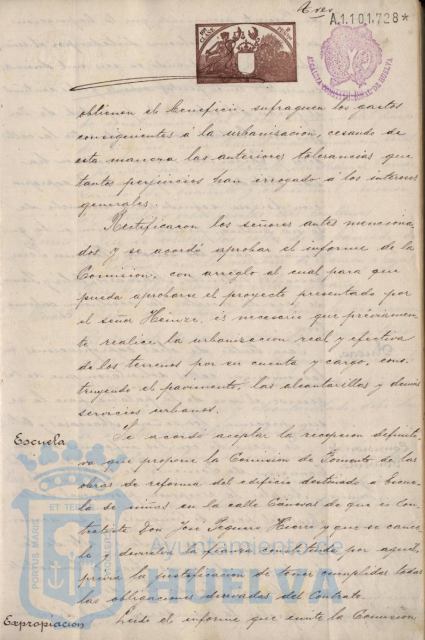 Tres
A.1.101.728*
ALCALDIA CONSTITUCIONAL DE HUELVA
obtienen el beneficio, sufraguen los gastos
consiguientes á la urbanizacion, cesando de
esta manera las anteriores tolerancias que
tantos perjuicios han irrogado á los intereses
generales.
Rectificaron los señores antes menciona-
dos y se acordó aprobar el informe de la
Comision, con arreglo al cual para que
pueda aprobarse el proyecto presentado por
el señor es necesario que préviamen-
te realice la urbanizacion real y efectiva
de los terrenos por su cuenta y cargo, cons-
truyendo el pavimento, las alcantarillas y demás
servicios urbanos.
Escuela
Se acordó aceptar la recepcion definiti-
va que propone la Comision de Fomento de las
obras de reforma del edificio destinado á Escue-
la de niñas en la calle Cánovas de que es Con-
tratista Don José y que se cance-
le y devuelva la fianza constituida por aquel,
prévia la justificacion de tener cumplidas todas
las obligaciones derivadas del Contrato.
Expropiacion
Leido el informe que emite la Comision
PORTUS MARIS
ET TERRAE
Ayuntamiento de
HUELVA